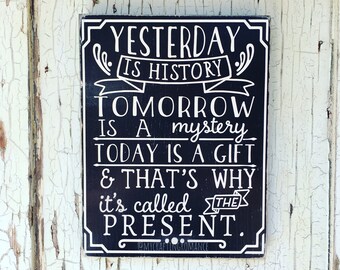 YESTERDAY
IS HISTORY
TOMORROW
IS A mystery
TODAY IS A GIFT
& THAT'S WHY
it's called THE
PRESENT.
@MYCRAFTINGROMANCE